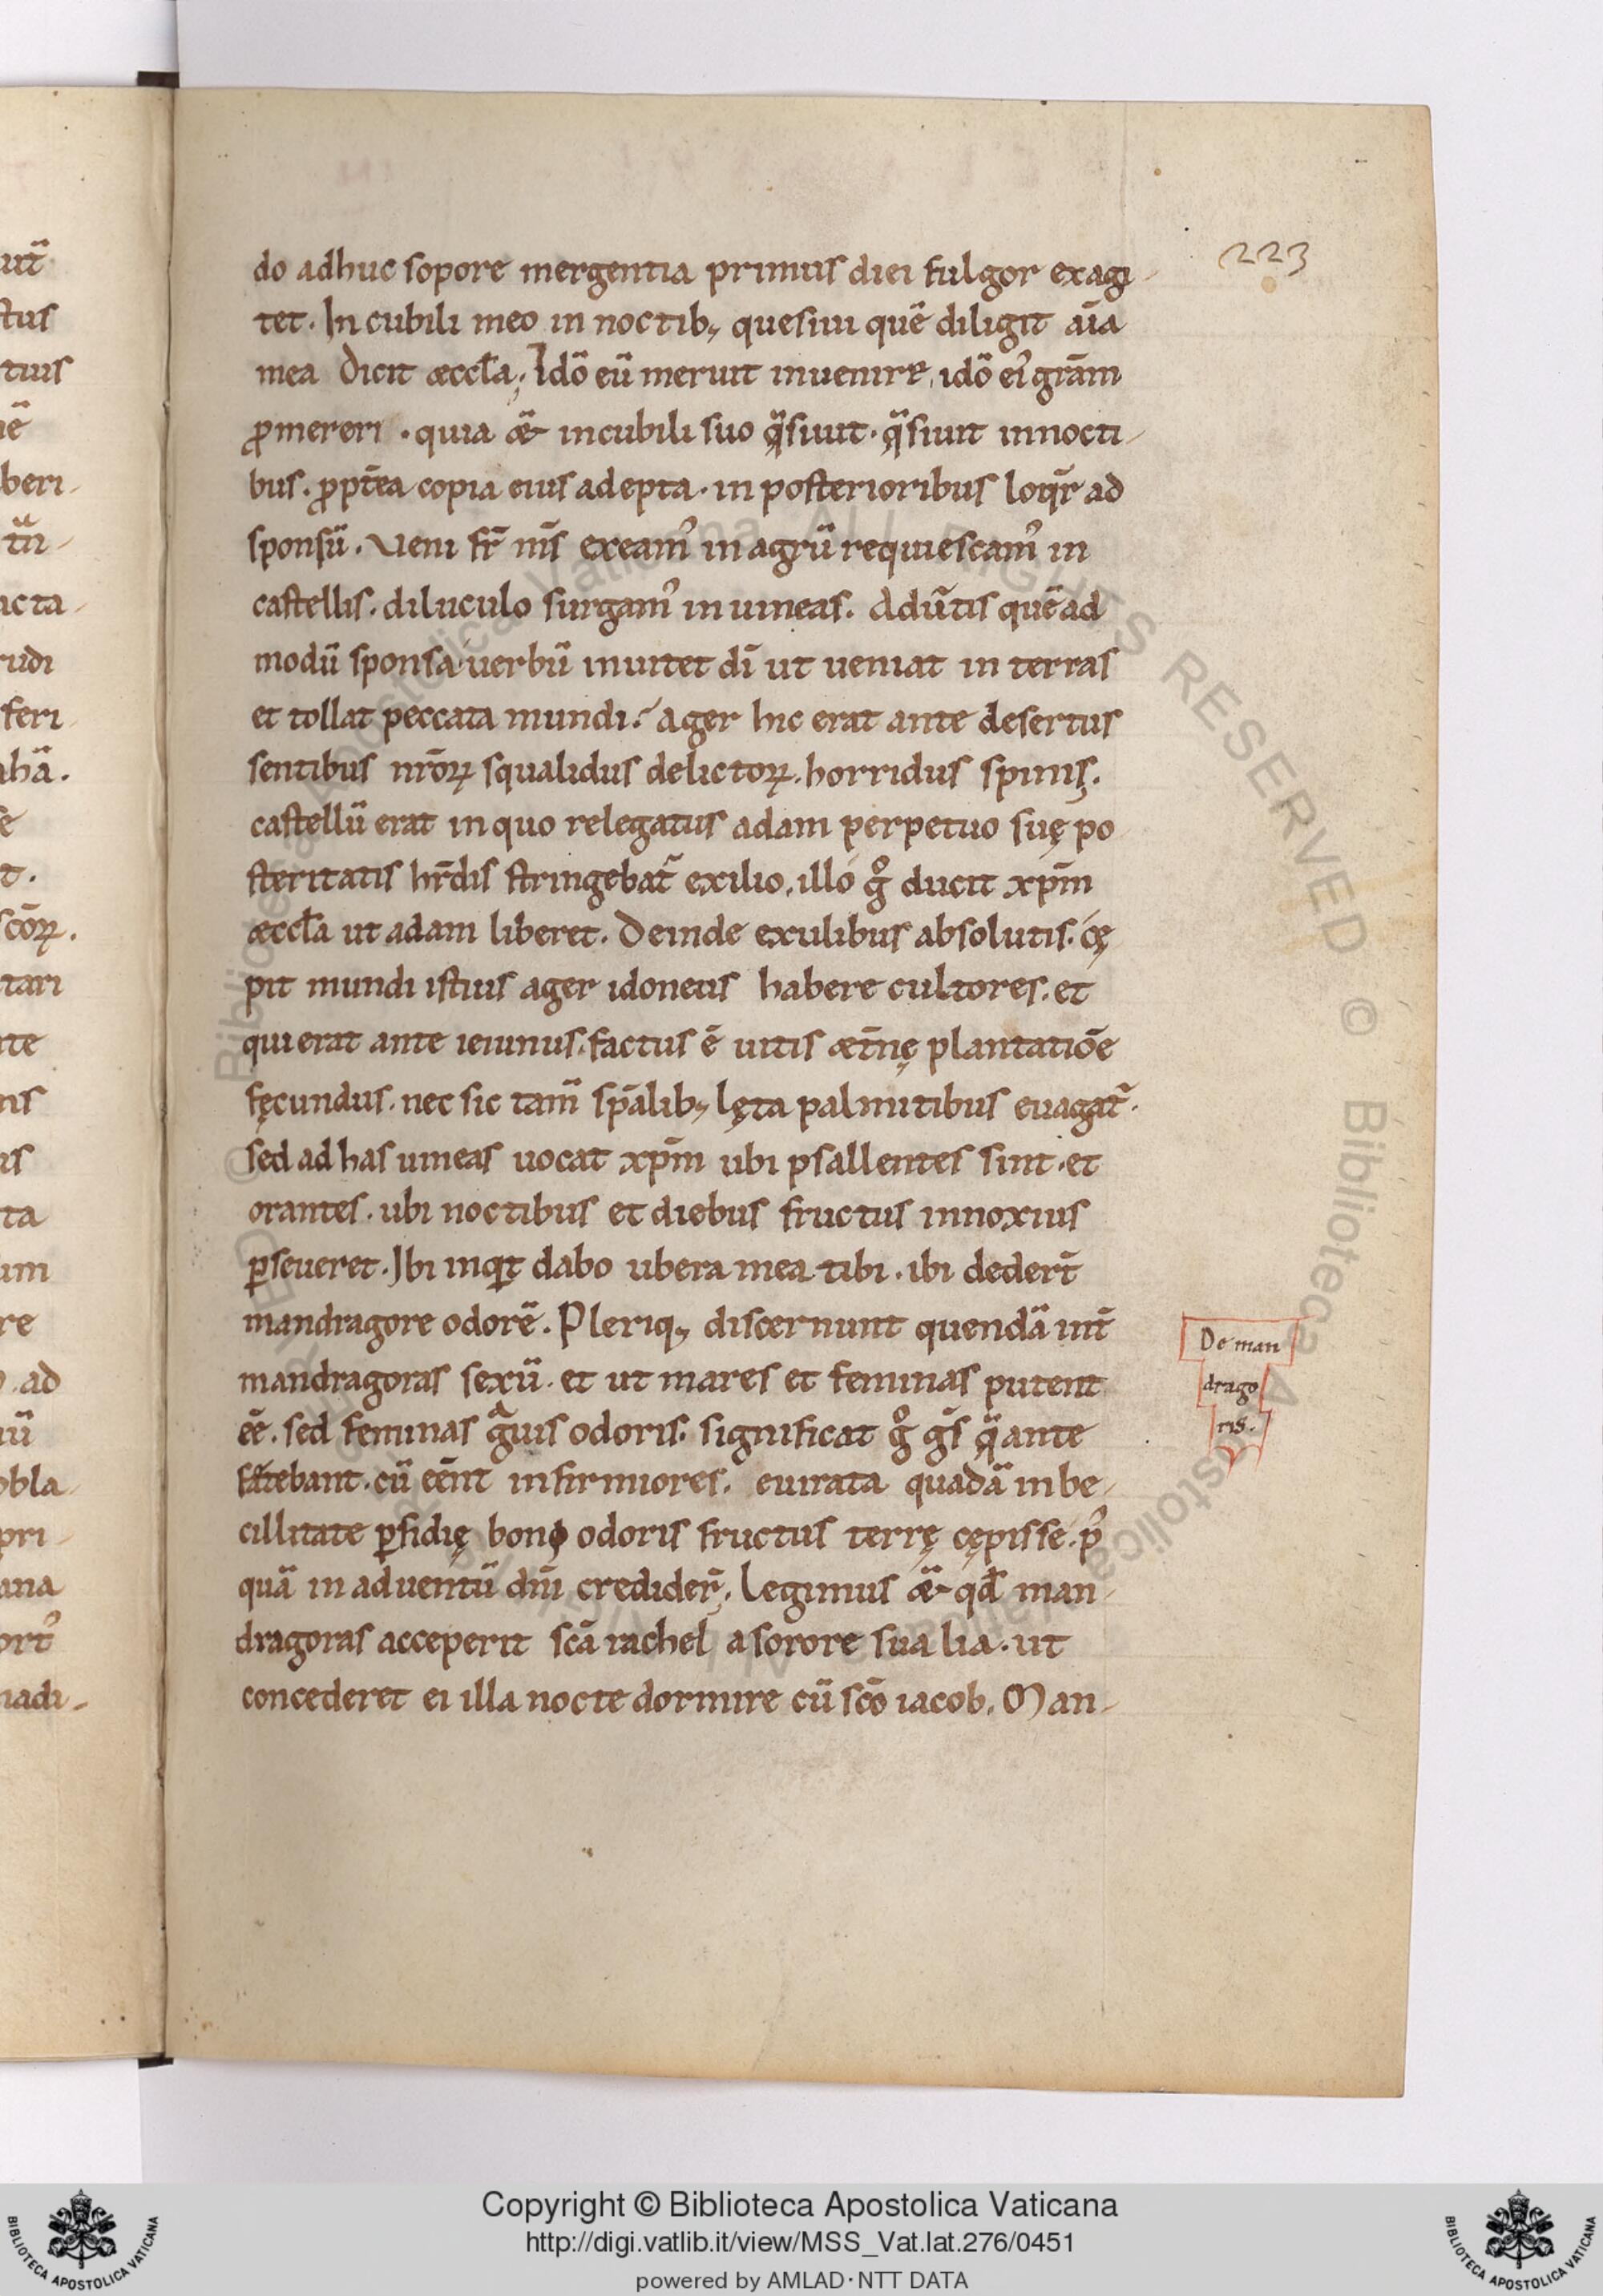 223
do adhuc sopore mergentia primus diei fulgor exagi-
tet. In cubili meo in noctib; quesiui quē diligit aīa
mea dicit æccła; Idō eū meruit inuenire, idō ei' grām
ꝓmereri . quia æ incubili suo q̄siuit. q̄siuit innocti-
bus. ꝓpt̄ea copia eius adepta. in posterioribus loqr̄ ad
sponsū. Veni fr̄ m̄s exeam' in agrū requiescam' in
castellis. diluculo surgam' in uineas. Adūtis quēad
modū sponsa uerbū inuitet dī ut ueniat in terras
et tollat peccata mundi. Ager hic erat ante desertus
sentibus nr̄oꝝ squalidus delictoꝝ. horridus spinis.
castellū erat in quo relegatus adam perpetuo suę po
steritatis hr̄dis stringebat̄ exilio, illo g° ducit xp̄m
æccła ut adam liberet. Deinde exulibus absolutis. cę
pit mundi istius ager idoneus habere cultores. et
qui erat ante ieiunus. factus ē uitis æt̄nę plantatiōe
fęcundus. nec sic tam̄ sp̄alib; lęta palmitibus euagat̄.
sed ad has uineas uocat xp̄m ubi psallentes sint. et
orantes. ubi noctibus et diebus fructus innoxius
ꝑseueret. Ibi inqt dabo ubera mea tibi. ibi dedert̄
mandragore odorē. Pleriq; discernunt quendā int̄
mandragoras sexū. et ut mares et feminas putent
eē. sed feminas g̃uis odoris. significat g° gs̄ q̄ ante
cū eēnt infirmiores. euirata quadā inbe-
cillitate ꝑfidię bono odoris fructus terrę cępisse. p'
quā in aduentū dn̄i credider̄. Legimus æ qđ man-
dragoras acceperit scā rachel a sorore sua lia. ut
concederet ei illa nocte dormire cū scō iacob. Man-
De man
drago
ris.
Copyright © Biblioteca Apostolica Vaticana
http://digi.vatlib.it/view/MSS_Vat.lat.276/0451
powered by AMLAD·NTT DATA
BIBLIOTECA APOSTOLICA VATICANA
BIBLIOTECA APOSTOLICA VATICANA